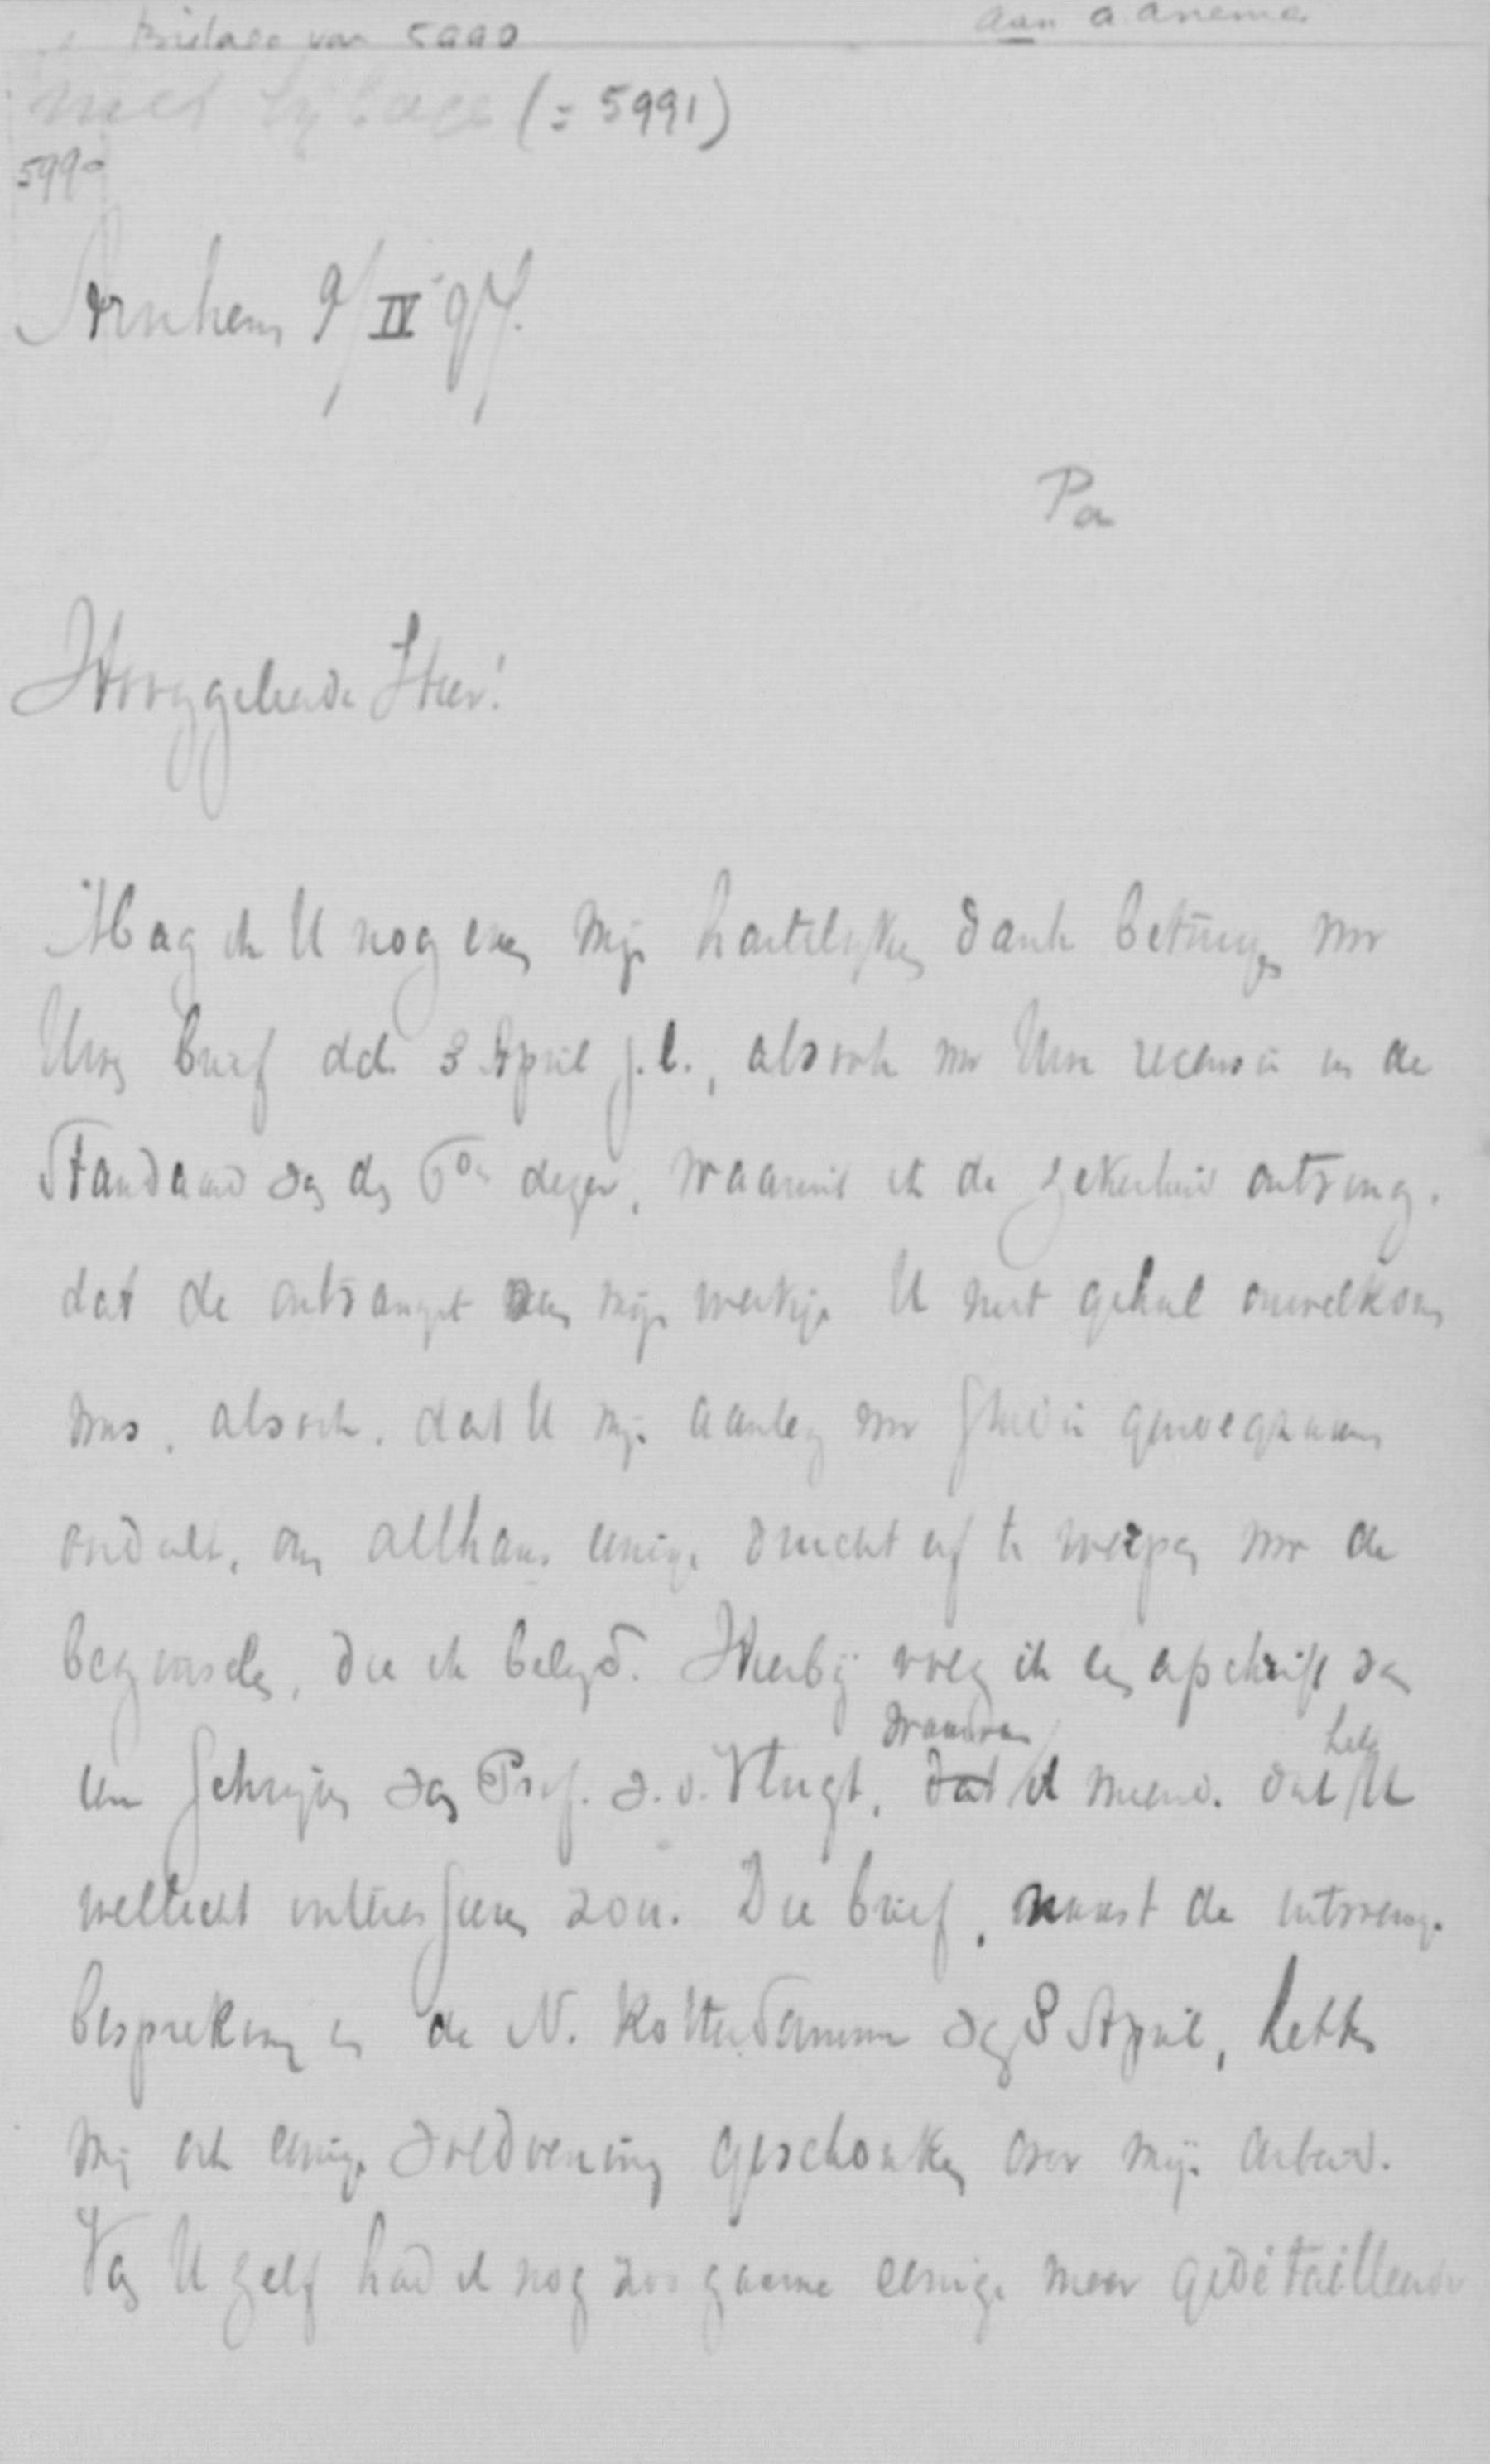 Bijlage van 5990 aan A. Anema
met bijlage (= 5991)
5990
Arnhem 9/IV '97.
Pa
Hooggeleerde Heer!
Mag ik U nog eens mijn hartelijken dank betuigen voor
Uwen brief dd. 3 April j.l., alsook voor Uwe recensie in de
Standaard van den dezer, waaruit ik de zekerheid ontving,
dat de ontvangst van mijn werkje U niet geheel onwelkom
was, alsook, dat U mijn aanleg voor studie genoegzaam
oordeelt, om althans eenige vrucht af te werpen voor de
beginselen, die ik belijd. Hierbij voeg ik een afschrift van
een schrijven van Prof. v. d. Vlugt, waarvan ik meende, dat het U
wellicht interesseeren zou. Die brief, naast de
bespreking in de N. Rotterdammer van 8 April, hebben
mij ook eenige voldoening geschonken over mijn arbeid.
Van U zelf had ik nog zoo gaarne eenige meer gedétailleerde